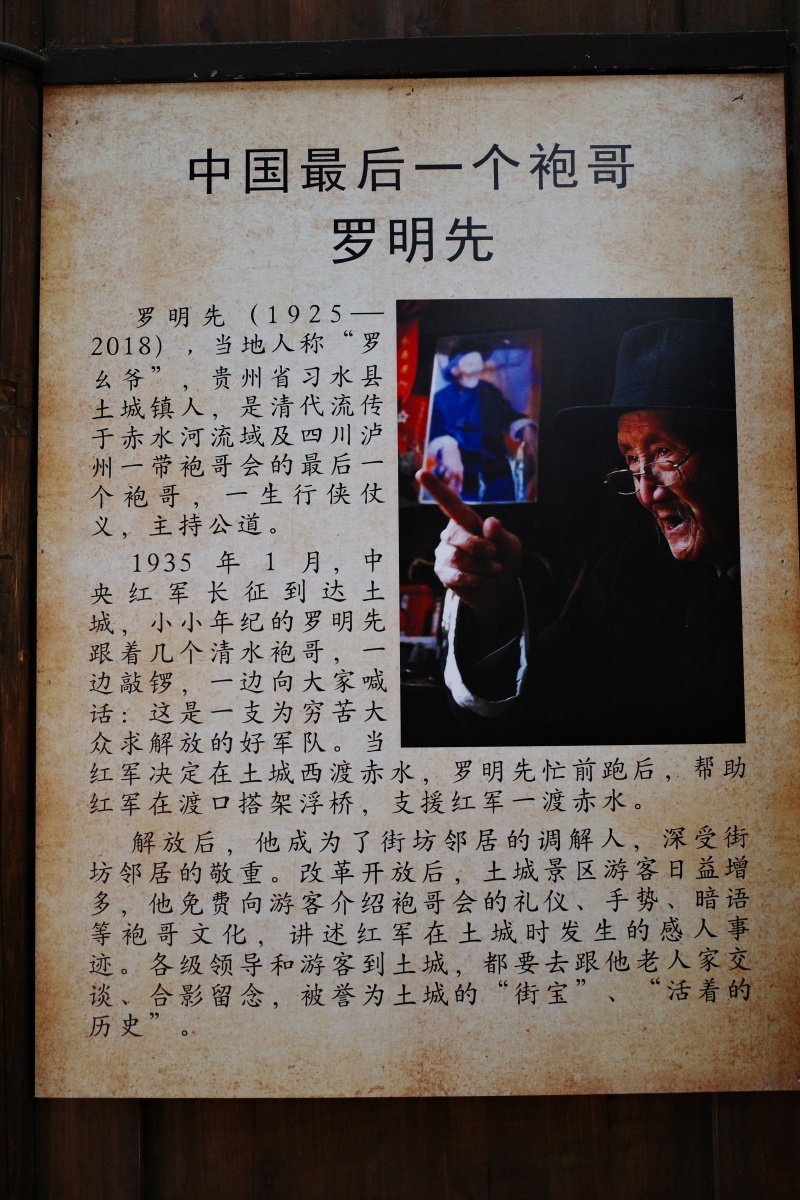 中国最后一个袍哥
罗明先
罗明先（1925—
2018），当地人称“罗
幺爷”，贵州省习水县
土城镇人，是清代流传
于赤水河流域及四川泸
州一带袍哥会的最后一
个袍哥，一生行侠仗
义，主持公道。
1935年1月，中
央红军长征到达土
城，小小年纪的罗明先
跟着几个清水袍哥，一
边敲锣，一边向大家喊
话：这是一支为穷苦大
众求解放的好军队。当
红军决定在土城西渡赤水，罗明先忙前跑后，帮助
红军在渡口搭架浮桥，支援红军一渡赤水。
解放后，他成为了街坊邻居的调解人，深受街
坊邻居的敬重。改革开放后，土城景区游客日益增
多，他免费向游客介绍袍哥会的礼仪、手势、暗语
等袍哥文化，讲述红军在土城时发生的感人事
迹。各级领导和游客到土城，都要去跟他老人家交
谈、合影留念，被誉为土城的“街宝”、“活着的
历史”。